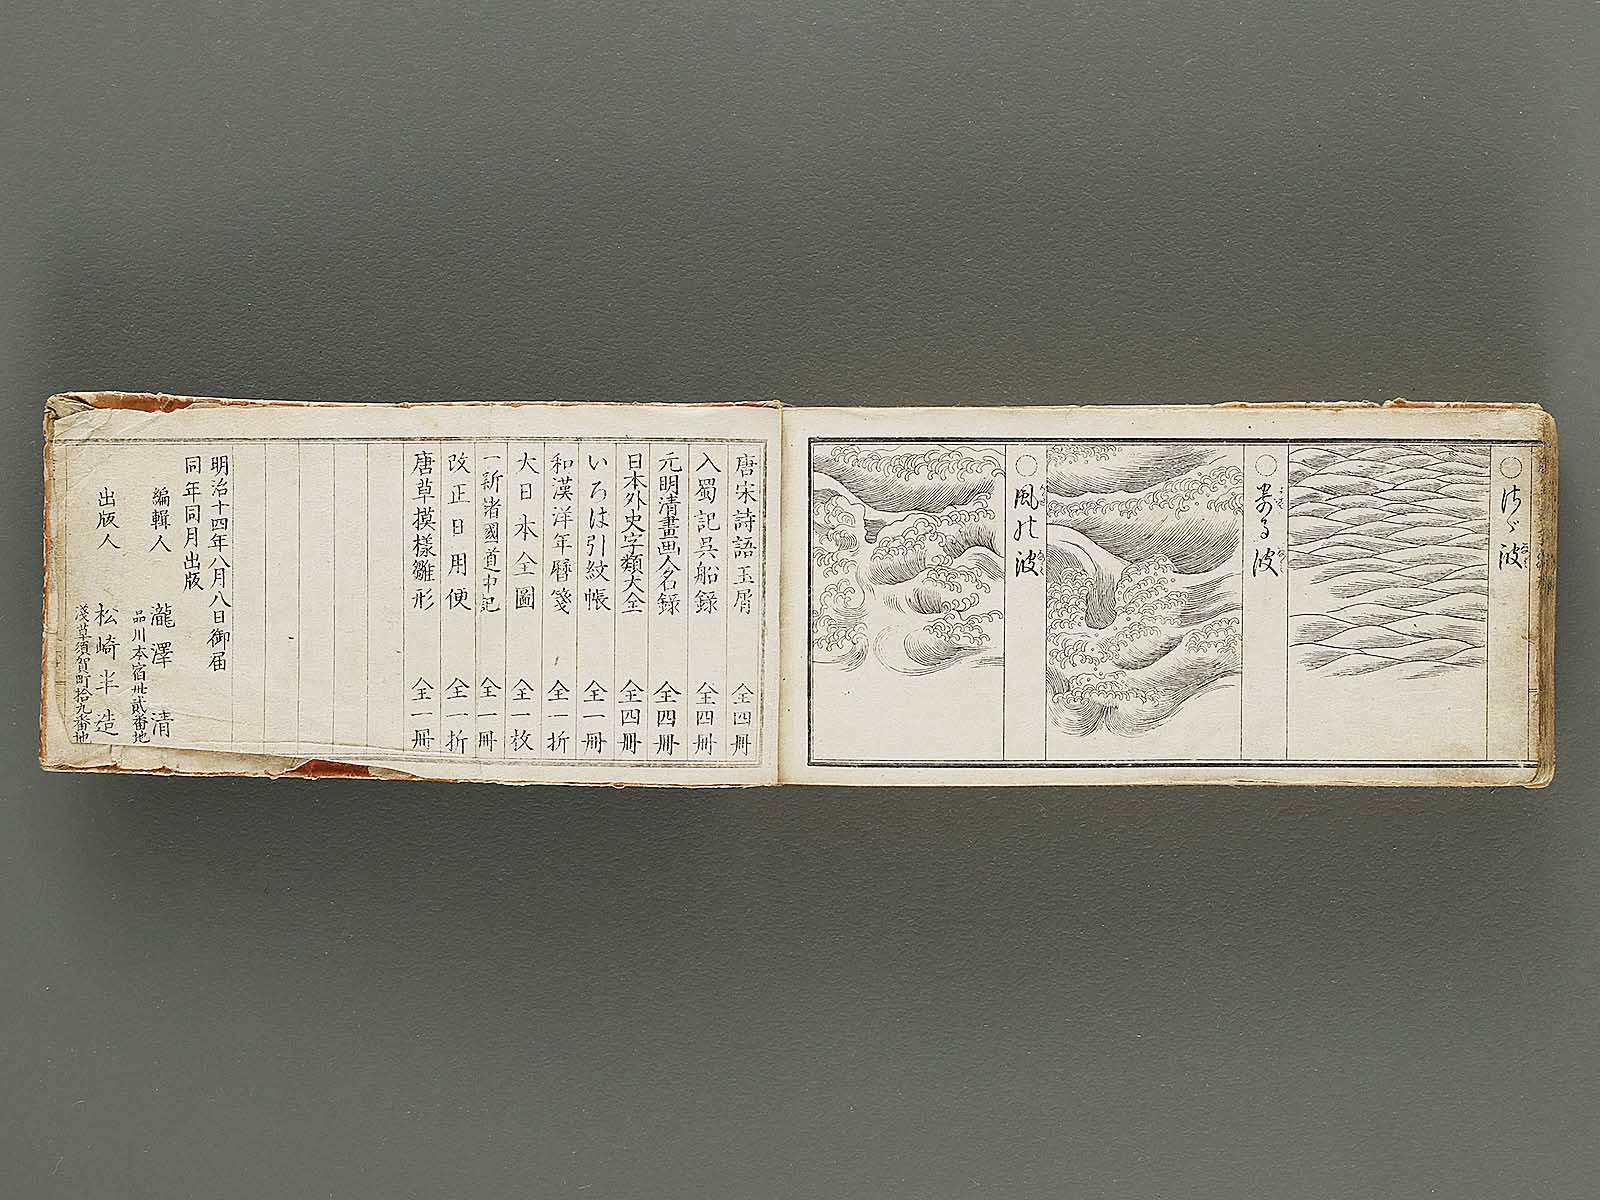 波
波
風の波
唐宋詩語玉屑 全四冊
入蜀記呉船録 全四冊
元明清書画人名録 全四冊
日本外史字類大全 全四冊
いろは引紋帳 全一冊
和漢洋年暦箋 全一折
大日本全圖 全一枚
一新諸國道中記 全一冊
改正日用便 全一折
唐草摸樣雛形 全一冊
明治十四年八月八日御届
同年同月出版
編輯人 瀧澤清
品川本宿卅貳番地
出版人 松崎半造
淺草須賀町拾九番地